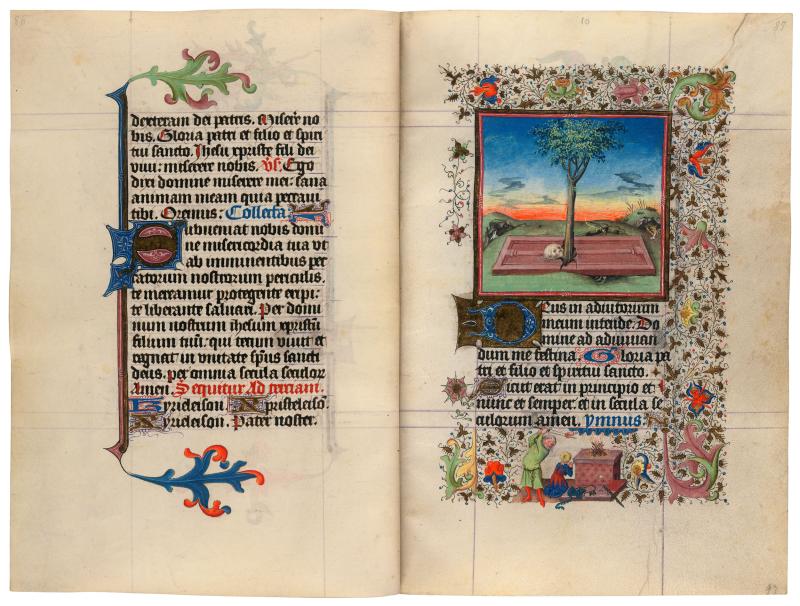 86
dexteram dei patris. Miserere no
bis. Gloria patri et filio et spiri
tui sancto. Ihesu xpriste fili dei
viui: miserere nobis. Vs. Ego
dixi domine miserere mei: sana
animam meam quia peccaui
tibi. Oremus: Collecta.
Nterueniat nobis domi
ne misericordia tua vt
ab imminentibus pec
catorum nostrorum periculis.
te mereamur protegente eripi:
te liberante saluari. Per domi
num nostrum ihesum xpristum
filium tuum. qui tecum viuit et
regnat in vnitate spiritus sancti
deus. per omnia secula seculorum
Amen. Sequitur Ad terciam.
Kyrieleison. Xpristeleison.
Kyrieleison. Pater noster.
10
87
Deus in adiutorium
meum intende. Do
mine ad adiuuan
dum me festina. Gloria pa
tri et filio et spiritui sancto.
Sicut erat in principio et
nunc et semper. et in secula se
culorum amen. ymnus.